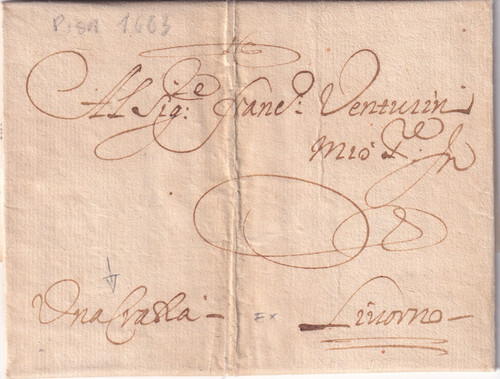 Pisa 1663
Al Sig:re Franc:o Venturini
mio
Una Crazia -
Livorno -